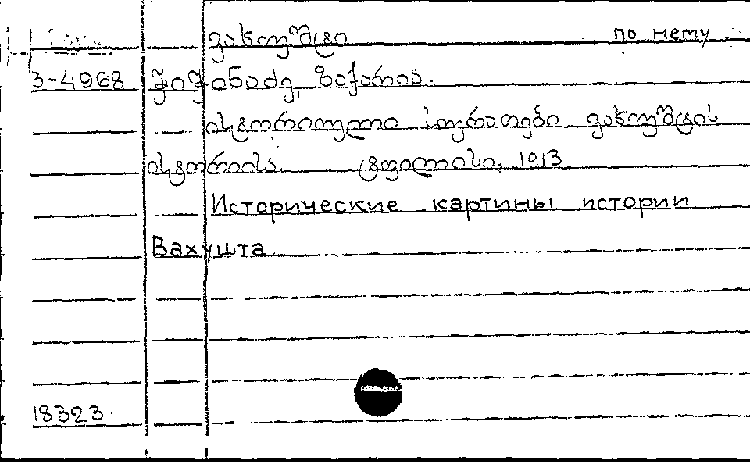 ვახუშტი по нему
3-4968 ჭიჭინაძე, ზაქარია.
ისტორიული სურათები ვახუშტის
ისტორიისა. ტფილისი, 1913
Исторические картины истории
Вахушта
18323